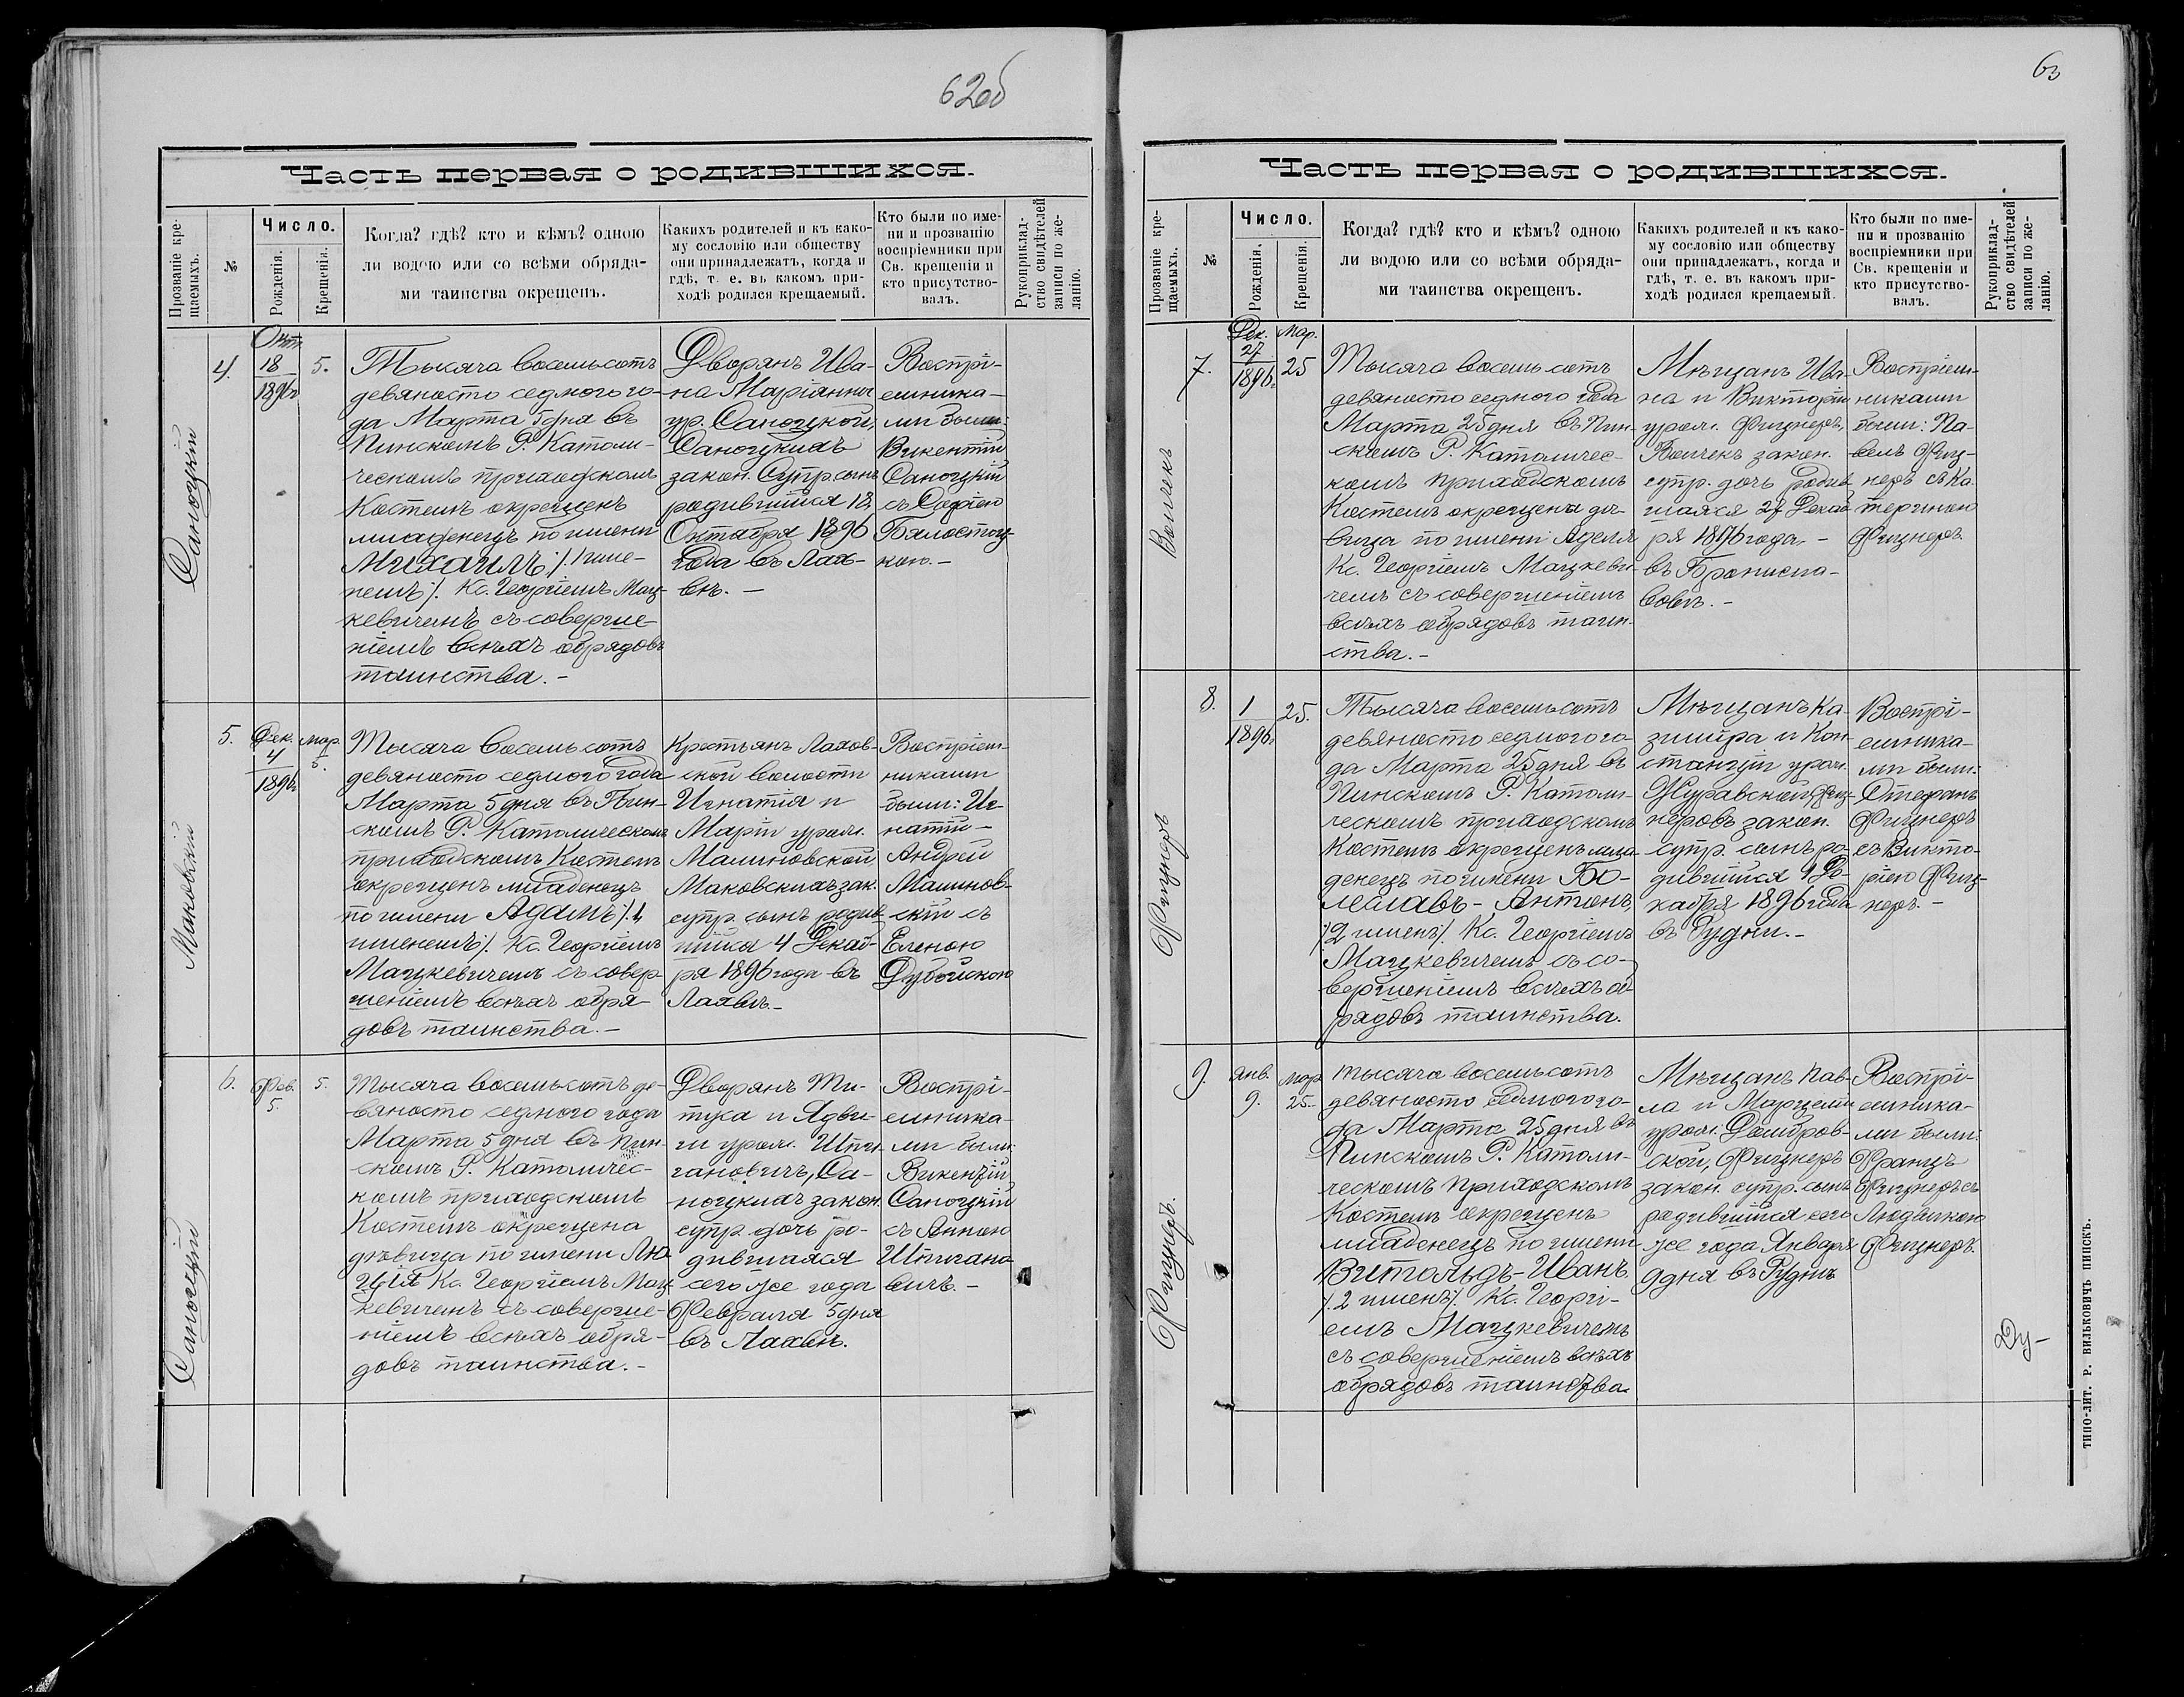 62об
Часть первая о родившихся.
Прозваніе кре-
щаемыхъ.
№
Число.
Рожденія.
Крещенія.
Когда? гдѣ? кто и кѣмъ? одною
ли водою или со всѣми обряда-
ми таинства окрещенъ.
Какихъ родителей и къ како-
му сословію или обществу
они принадлежатъ, когда и
гдѣ, т. е. въ какомъ при-
ходѣ родился крещаемый.
Кто были по име-
ни и прозванію
воспріемники при
Св. крещеніи и
кто присутство-
валъ.
Рукоприклад-
ство свидѣтелей
записи по же-
ланію.
Саноцкій
4.
Окт.
18
1896г
5.
Тысяча восемьсотъ
девяносто седмого го-
да Марта 5 дня въ
Пинскомъ Р. Католи-
ческомъ приходскомъ
Костелѣ окрещенъ
младенецъ по имени
Михаилъ /. 1 име-
немъ/. Кс. Георгіемъ Мац-
кевичемъ съ соверше-
ніемъ всѣхъ обрядовъ
таинства. -
Дворянъ Ива-
на Маріанны
ур. Саноцкой,
Саноцкихъ
закон. Супр. сынъ
родившійся 18
Октября 1896
года въ Лах-
вѣ. -
Воспрі-
емника-
ми были:
Викентій
Саноцкій
съ Софіею
Бялостоц-
кою. -
Маковскій
5.
Дек.
4
1896г
Мар.
5.
Тысяча восемьсотъ
девяносто седмого года
Марта 5 дня въ Пин-
скомъ Р. Католическомъ
приходскомъ Костелѣ
окрещенъ младенецъ
по имени Адамъ /. 1
именемъ/. Кс. Георгіемъ
Мацкевичемъ съ совер-
шеніемъ всѣхъ обря-
довъ таинства. -
Крестьянъ Лахов-
ской волости
Игнатія и
Маріи урож.
Малиновской
Маковскихъ зак.
супр. сынъ родив-
шійся 4 Декаб-
ря 1896 года въ
Лахвѣ. -
Воспріем-
никами
были: Иг-
натій -
Андрей
Малинов-
скій съ
Еленою
Дубойскою
Саноцкій
6.
Фев.
5.
5.
Тысяча восемьсотъ де-
вяносто седмого года
Марта 5 дня въ Пин-
скомъ Р. Католичес-
комъ приходскомъ
Костелѣ окрещена
дѣвица по имени Лю-
ція Кс. Георгіемъ Мац-
кевичемъ съ соверше-
ніемъ всѣхъ обря-
довъ таинства. -
Дворянъ Ти-
туса и Ядви-
ги урож.
гановичъ, Са-
ноцкихъ закон.
супр. дочь ро-
дившаяся
сего же года
Февраля 5 дня
въ Лахвѣ.
Воспрі-
емника-
ми были
Викентій
Саноцкій
съ Анною
вичъ. -
63
Часть первая о родившихся.
Прозваніе кре-
щаемыхъ.
№
Число.
Рожденія.
Крещенія.
Когда? гдѣ? кто и кѣмъ? одною
ли водою или со всѣми обряда-
ми таинства окрещенъ.
Какихъ родителей и къ како-
му сословію или обществу
они принадлежатъ, когда и
гдѣ, т. е. въ какомъ при-
ходѣ родился крещаемый.
Кто были по име-
ни и прозванію
воспріемники при
Св. крещеніи и
кто присутство-
валъ.
Рукоприклад-
ство свидѣтелей
записи по же-
ланію.
Волчекъ
7.
Дек.
27
1896г
Мар.
25
Тысяча восемьсотъ
девяносто седмого года
Марта 25 дня въ Пин-
скомъ Р. Католичес-
комъ приходскомъ
Костелѣ окрещена дѣ-
вица по имени Аделя
Кс. Георгіемъ Мацкеви-
чемъ съ совершеніемъ
всѣхъ обрядовъ таин-
ства. -
Мѣщанъ Ива-
на и Викторіи
урож. Фицнеръ,
Волчекъ закон.
супр. дочь родив-
шаяся 27 Декаб-
ря 1896 года. -
въ Бронисла-
вовѣ. -
Воспріем-
никами
были: Па-
велъ Фиц-
неръ съ Ка-
териною
Фицнеръ.
Фицнеръ
8.
1
1896г
25.
Тысяча восемьсотъ
девяносто седмого го-
да Марта 25 дня въ
Пинскомъ Р. Католи-
ческомъ приходскомъ
Костелѣ окрещенъ мла-
денецъ по имени Бо-
леславъ - Антонъ,
/2 именъ/. Кс. Георгіемъ
Мацкевичемъ съ со-
вершеніемъ всѣхъ об-
рядовъ таинства.
Мѣщанъ Ка-
зиміра и Кон-
станціи урож.
Журавской, Фиц-
неровъ закон.
супр. сынъ ро-
дившійся 1 Де-
кабря 1896 года
въ Рудни. -
Воспрі-
емника-
ми были:
Стефанъ
Фицнеръ
съ Викто-
ріею Фиц-
неръ. -
Фицнеръ.
9.
Янв.
9.
Мар
25.
Тысяча восемьсотъ
девяносто седмого го-
да Марта 25 дня въ
Пинскомъ Р. Католи-
ческомъ приходскомъ
Костелѣ окрещенъ
младенецъ по имени
Витольдъ - Иванъ
/. 2 именъ/. Кс. Георгі-
емъ Мацкевичемъ
съ совершеніемъ всѣхъ
обрядовъ таинства
Мѣщанъ Пав-
ла и Марцели
урож. Домбров-
ской, Фицнеръ
закон. супр. сынъ
родившійся сего
же года Января
9 дня въ Руднѣ
Воспрі-
емника-
ми были:
Францъ
Фицнеръ съ
Людвикою
Фицнеръ.
ТИПО-ЛИТ. Р. ВИЛЬКОВИЧЪ ПИНСКЪ.